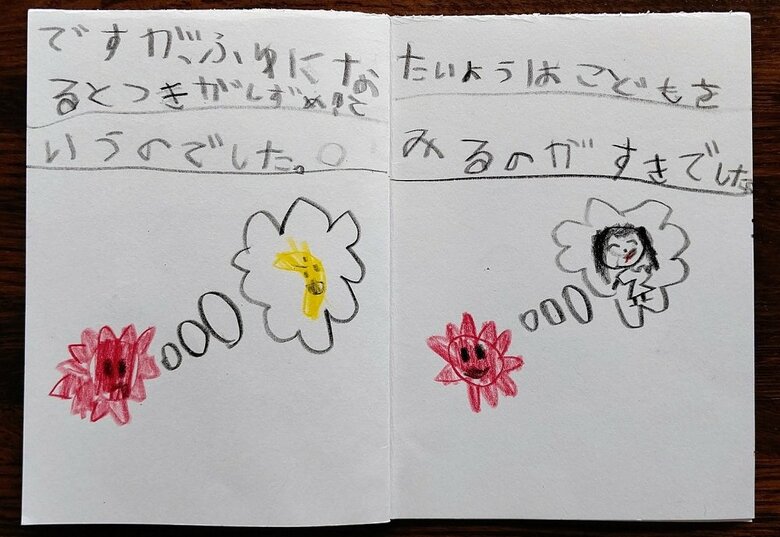 たいようはこどもを
みるのがすきでした。
ですが、ふゆにな
るとつきがしずめ!と
いうのでした。